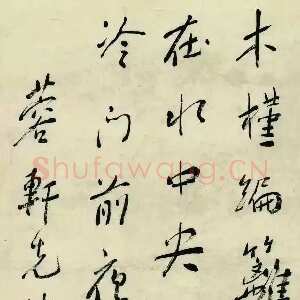 木槿编篱
在水中央
冷门前
蓉轩先
Shufawang.CN